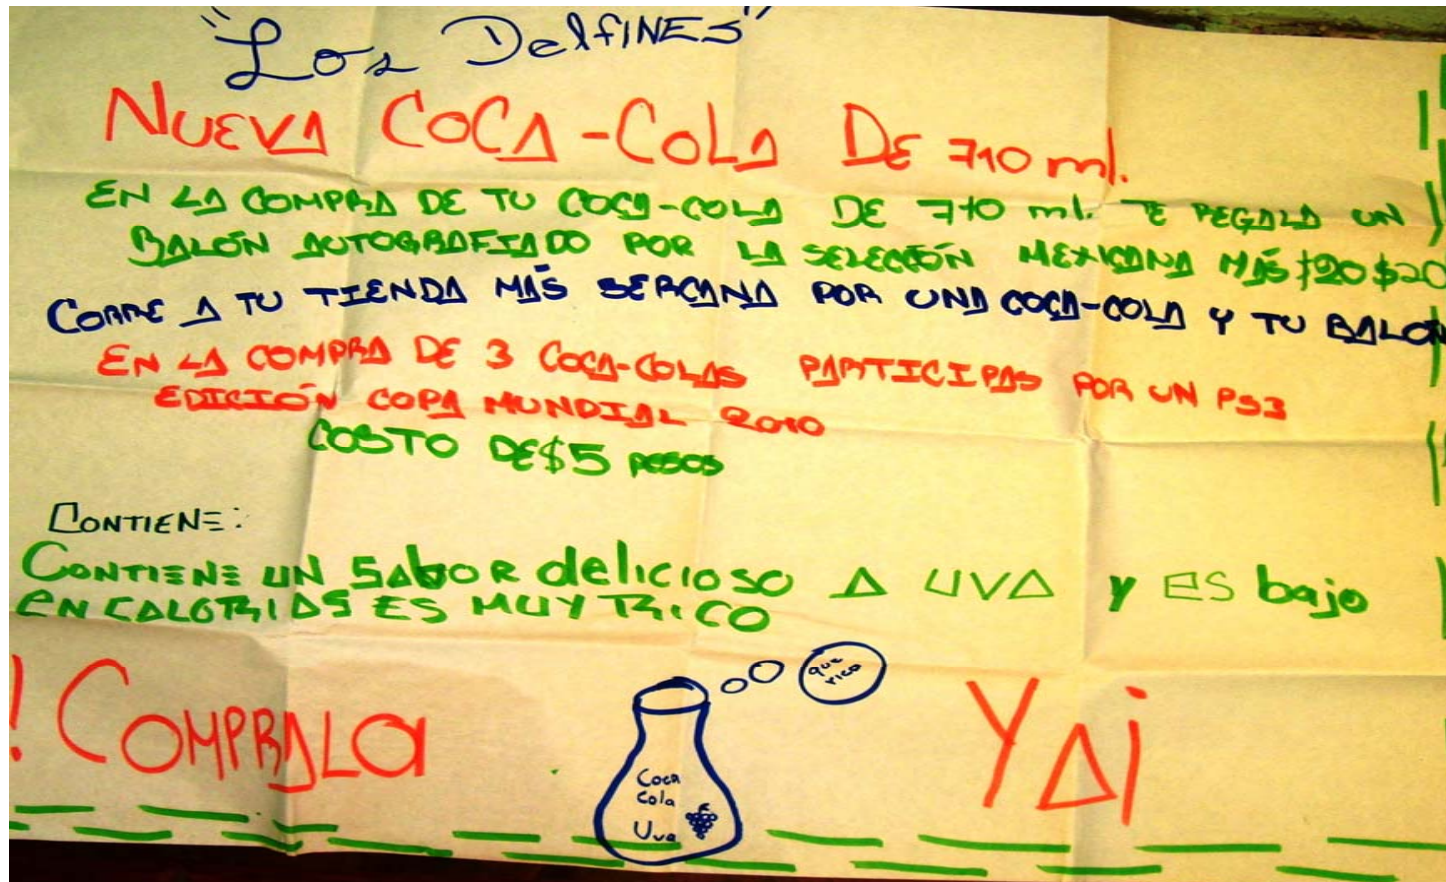 "Los DelfINES"
NUEVA COCA-COLA DE 710 ml.
EN LA COMPRA DE TU COCA-COLA DE 710 ml. TE REGALA UN
BALÓN AUTOGRAFIADO POR LA SELECCIÓN MEXICANA MÁS $20 $20
CORRE A TU TIENDA MÁS SERCANA POR UNA COCA-COLA Y TU BALÓN
EN LA COMPRA DE 3 COCA-COLAS PARTICIPAS POR UN PS3
EDICIÓN COPA MUNDIAL 2010
COSTO DE $5 PESOS
CONTIENE:
CONTIENE UN SABOR delicioso A UVA Y ES bajo
EN CALORIAS ES MUY RICO
que
rico
! COMPRALA YA¡
Coca
Cola
Uva